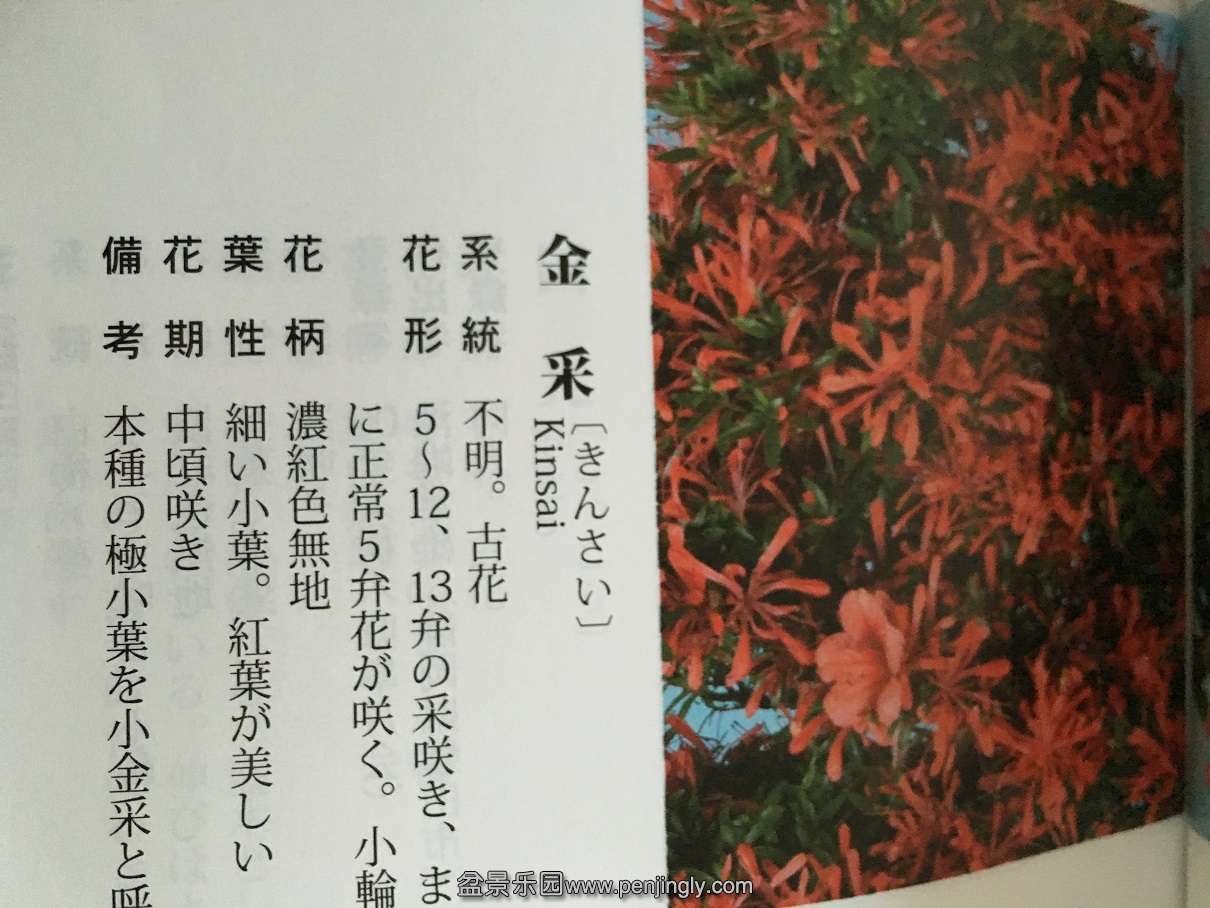 金采 〔きんさい〕
Kinsai
系統 不明。古花
花形 5〜12、13弁の采咲き、ま
に正常5弁花が咲く。小輪
花柄 濃紅色無地
葉性 細い小葉。紅葉が美しい
花期 中頃咲き
備考 本種の極小葉を小金采と呼
盆景乐园www.penjingly.com